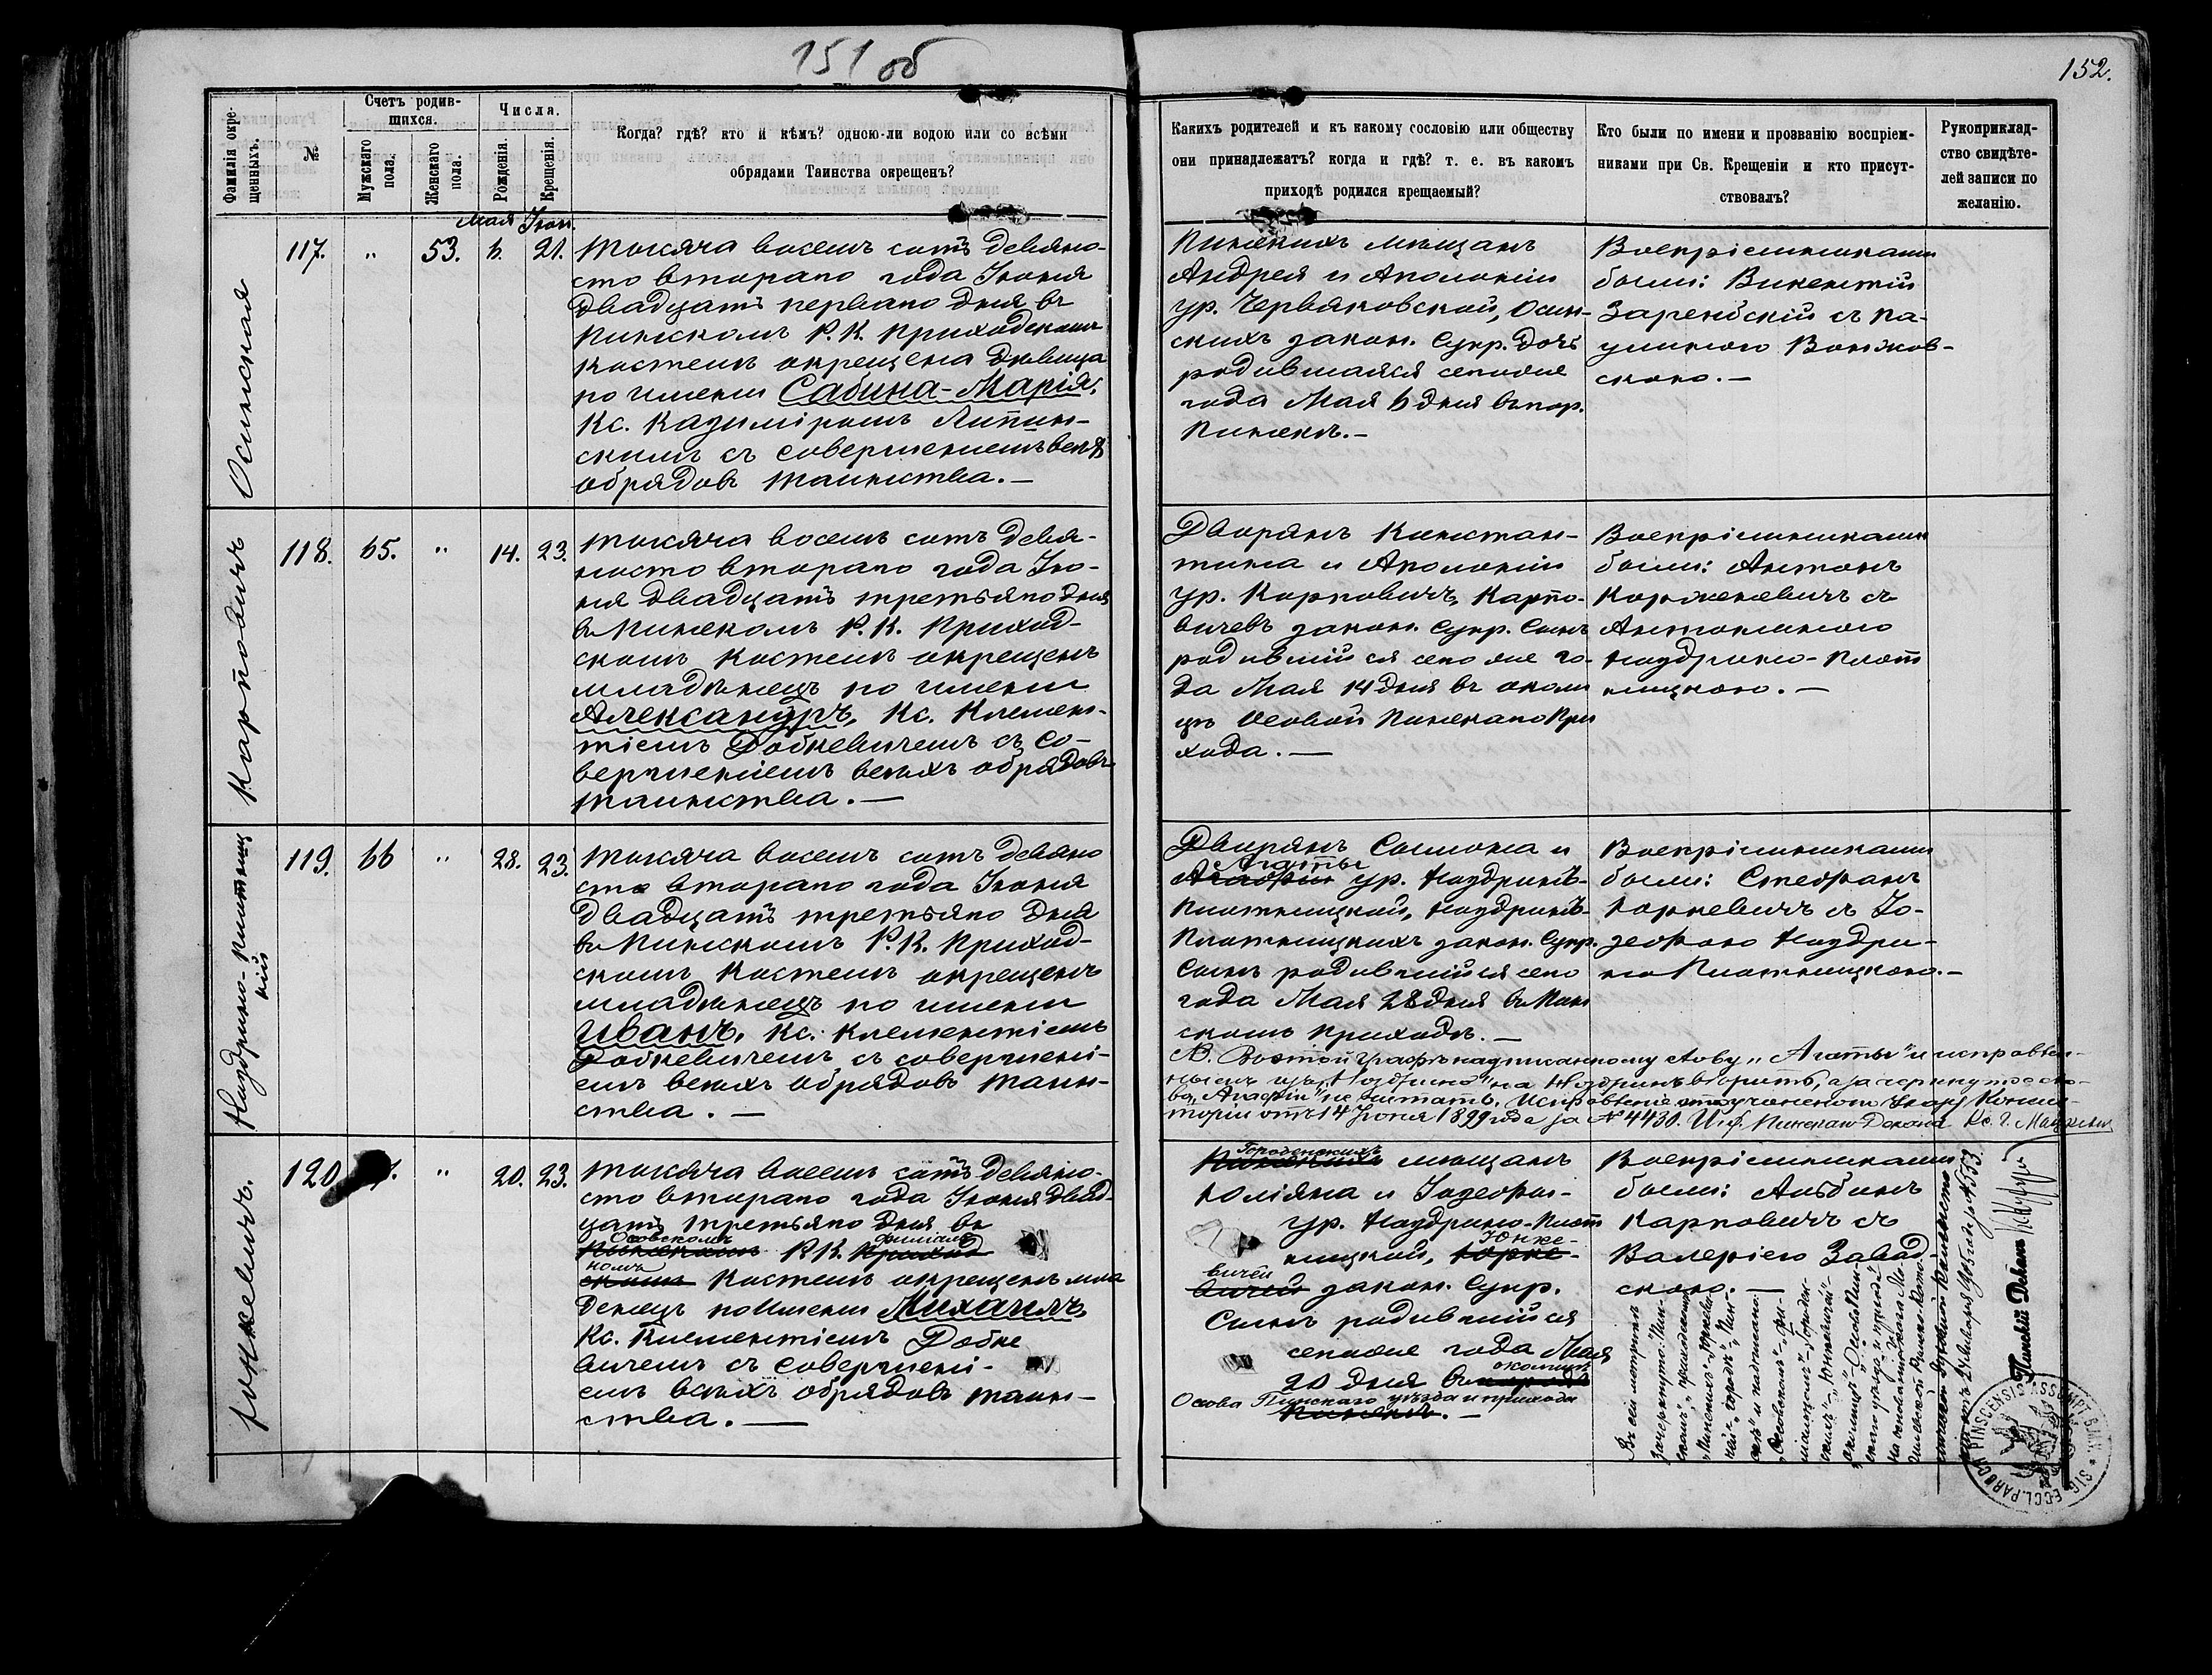 151 об
152.
Фамилія окре-
щенныхъ.
№
Счетъ родив-
шихся.
Мужскаго
пола.
Женскаго
пола.
Числа.
Рожденія.
Крещенія.
Когда? гдѣ? кто и кѣмъ? одною-ли водою или со всѣми
обрядами Таинства окрещенъ?
Какихъ родителей и къ какому сословію или обществу
они принадлежатъ? когда и гдѣ? т. е. въ какомъ
приходѣ родился крещаемый?
Кто были по имени и прозванію воспріем-
никами при Св. Крещеніи и кто присут-
ствовалъ?
Рукоприклад-
ство свидѣте-
лей записи по
желанію.
Мая Іюн.
Осинская
117. " 53. 6. 21.
Тысяча восемь сотъ девяно-
сто втораго года Іюня
двадцать перваго дня въ
Пинскомъ Р. К. Приходскомъ
костелѣ окрещена дѣвица
по имени Сабина-Марія,
Кс. Казиміромъ Липин-
скимъ съ совершеніемъ всѣхъ
обрядовъ таинства.—
Пинскихъ мѣщанъ
Андрея и Аполоніи
ур. Червяковской, Осин-
скихъ закон. супр. дочь
родившаяся сегоже
года Мая 6 дня въ гор.
Пинскѣ.—
Воспріемниками
были: Викентій
Зарембскій съ Па-
улиною Вонжов-
скою.—
Карповичъ
118. 65. " 14. 23.
Тысяча восемь сотъ девя-
носто втораго года Ію-
ня двадцать третьяго дня
въ Пинскомъ Р. К. Приход-
скомъ костелѣ окрещенъ
младенецъ по имени
Александръ, Кс. Клемен-
тіемъ Добкевичемъ съ со-
вершеніемъ всѣхъ обрядовъ
таинства.—
Дворянъ Констан-
тина и Аполоніи
ур. Карповичъ, Карпо-
вичевъ закон. супр. сынъ
родившійся сего же го-
да Мая 14 дня въ околи
цѣ Осовой Пинскаго При
хода.—
Воспріемниками
были: Антонъ
Корженевичъ съ
Антониною
Ноздрино-Плот
ницкою.—
Ноздрино-Плотниц
кій
119. 66 " 28. 23.
Тысяча восемь сотъ девяно
сто втораго года Іюня
двадцать третьяго дня
въ Пинскомъ Р. К. Приход-
скомъ костелѣ окрещенъ
младенецъ по имени
Иванъ, Кс. Клементіемъ
Добкевичемъ съ совершені-
емъ всѣхъ обрядовъ таин-
ства.—
Дворянъ Симона и
Агаты
Агафіи ур. Ноздринъ-
Плотницкой, Ноздринъ-
Плотницкихъ закон. супр.
сынъ родившійся сего
года Мая 28 дня въ Пин
скомъ приходѣ.—
Воспріемниками
были: Стефанъ
Юркевичъ съ Іо-
зефою Ноздри-
но Плотницкою.—
торіи отъ 14 Іюня 1899 года за № 4430.
Юнкевичъ.
120 " 20. 23.
Тысяча восемь сотъ девяно-
сто втораго года Іюня двад-
цать третьяго дня въ
Осовскомъ филіаль
Пинскомъ Р. К. Приход
номъ
скомъ костелѣ окрещенъ мла
денецъ по имени Михаилъ,
Кс. Клементіемъ Добке
вичемъ съ совершені-
емъ всѣхъ обрядовъ таин-
ства.—
Городенскихъ
Пинскихъ мѣщанъ
Юліяна и Іозефы-
ур. Ноздрино-Плот
Юнке-
ницкой, Юрке-
вичей
вичей закон. супр.
сынъ родившійся
сегоже года Мая
околицѣ
20 дня въ городѣ
Осова Пинскаго уѣзда и прихода
Пинскѣ.—
Воспріемниками
были: Альбинъ
Карповичъ съ
Валеріею Завад-
скою.—
Пинскій Деканъ
SIG. ECCL. PAROCH. PINSCENSIS ASSUMPT. B.